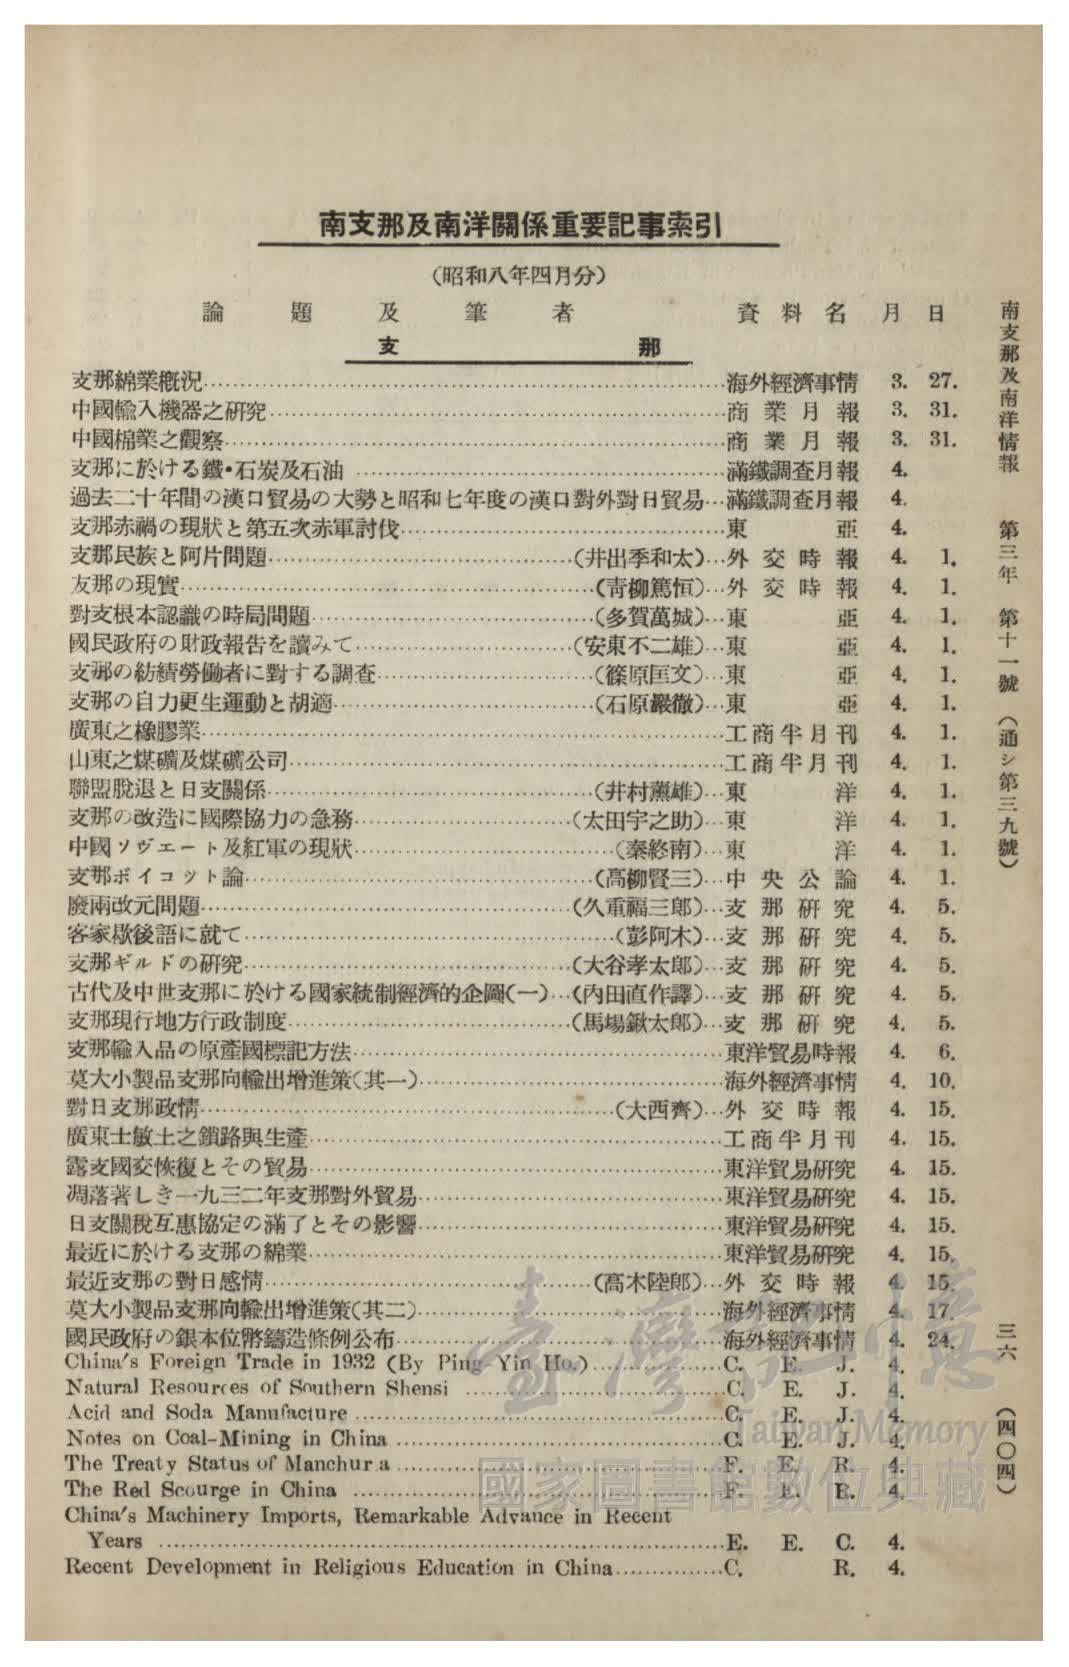 南支那及南洋關係重要記事索引
(昭和八年四月分)
論題及筆者 資料名 月 日
支那
支那綿業概況 海外經濟事情 3. 27.
中國輸入機器之研究 商業月報 3. 31.
中國棉業之觀察 商業月報 3. 31.
支那に於ける鐵・石炭及石油 滿鐵調査月報 4.
過去二十年間の漢口貿易の大勢と昭和七年度の漢口對外對日貿易 滿鐵調査月報 4.
支那赤禍の現狀と第五次赤軍討伐 東亞 4.
支那民族と阿片問題 (井出季和太) 外交時報 4. 1.
友那の現實 (靑柳篤恒) 外交時報 4. 1.
對支根本認識の時局問題 (多賀萬城) 東亞 4. 1.
國民政府の財政報告を讀みて (安東不二雄) 東亞 4. 1.
支那の紡績勞働者に對する調査 (篠原匡文) 東亞 4. 1.
支那の自力更生運動と胡適 (石原嚴徹) 東亞 4. 1.
廣東之橡膠業 工商半月刊 4. 1.
山東之煤礦及煤礦公司 工商半月刊 4. 1.
聯盟脫退と日支關係 (井村薰雄) 東洋 4. 1.
支那の改造に國際協力の急務 (太田宇之助) 東洋 4. 1.
中國ソヴエート及紅軍の現狀 (秦終南) 東洋 4. 1.
支那ボイコツト論 (高柳賢三) 中央公論 4. 1.
廢兩改元問題 (久重福三郎) 支那研究 4. 5.
客家歇後語に就て (彭阿木) 支那研究 4. 5.
支那ギルドの研究 (大谷孝太郎) 支那研究 4. 5.
古代及中世支那に於ける國家統制經濟的企圖(一) (內田直作譯) 支那研究 4. 5.
支那現行地方行政制度 (馬場鍬太郎) 支那研究 4. 5.
支那輸入品の原產國標記方法 東洋貿易時報 4. 6.
莫大小製品支那向輸出增進策(其一) 海外經濟事情 4. 10.
對日支那政情 (大西齊) 外交時報 4. 15.
廣東士敏土之鎖路與生產 工商半月刊 4. 15.
露支國交恢復とその貿易 東洋貿易硏究 4. 15.
凋落著しき一九三二年支那對外貿易 東洋貿易硏究 4. 15.
日支關稅互惠協定の滿了とその影響 東洋貿易硏究 4. 15.
最近に於ける支那の綿業 東洋貿易硏究 4. 15.
最近支那の對日感情 (高木陸郎) 外交時報 4. 15.
莫大小製品支那向輸出增進策(其二) 海外經濟事情 4. 17.
國民政府の銀本位幣鑄造條例公布 海外經濟事情 4. 24.
China's Foreign Trade in 1932 (By Ping-Yin Ho.) C. E. J. 4.
Natural Resources of Southern Shensi C. E. J. 4.
Acid and Soda Manufacture C. E. J. 4.
Notes on Coal-Mining in China C. E. J. 4.
The Treaty Status of Manchur a F. E. R. 4.
The Red Scourge in China F. E. R. 4.
China's Machinery Imports, Remarkable Advance in Recent
Years E. E. C. 4.
Recent Development in Religious Education in China C. R. 4.
南支那及南洋情報 第三年 第十一號 (通シ第三九號) 三六 (四〇四)
臺灣記憶
Taiwan Memory
國家圖書館數位典藏